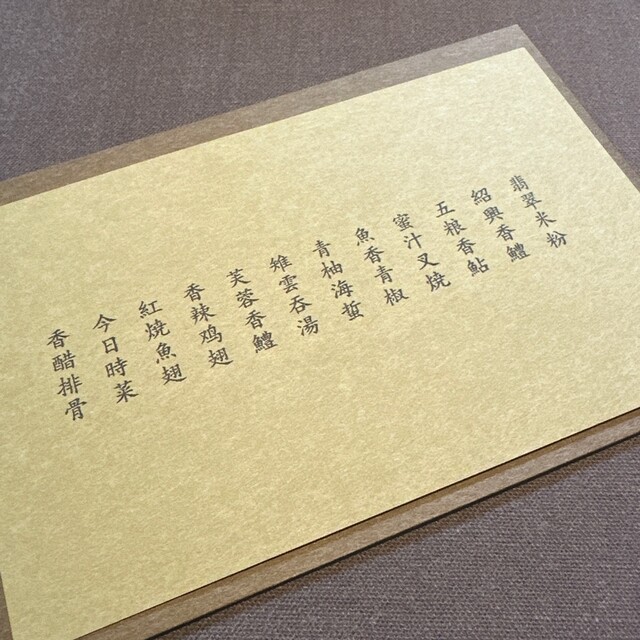 翡翠米粉
紹興香鱧
五粮香鮎
蜜汁叉燒
魚香青椒
青柚海蜇
雉雲吞湯
芙蓉香鱧
香辣鸡翅
紅燒魚翅
今日時菜
香醋排骨